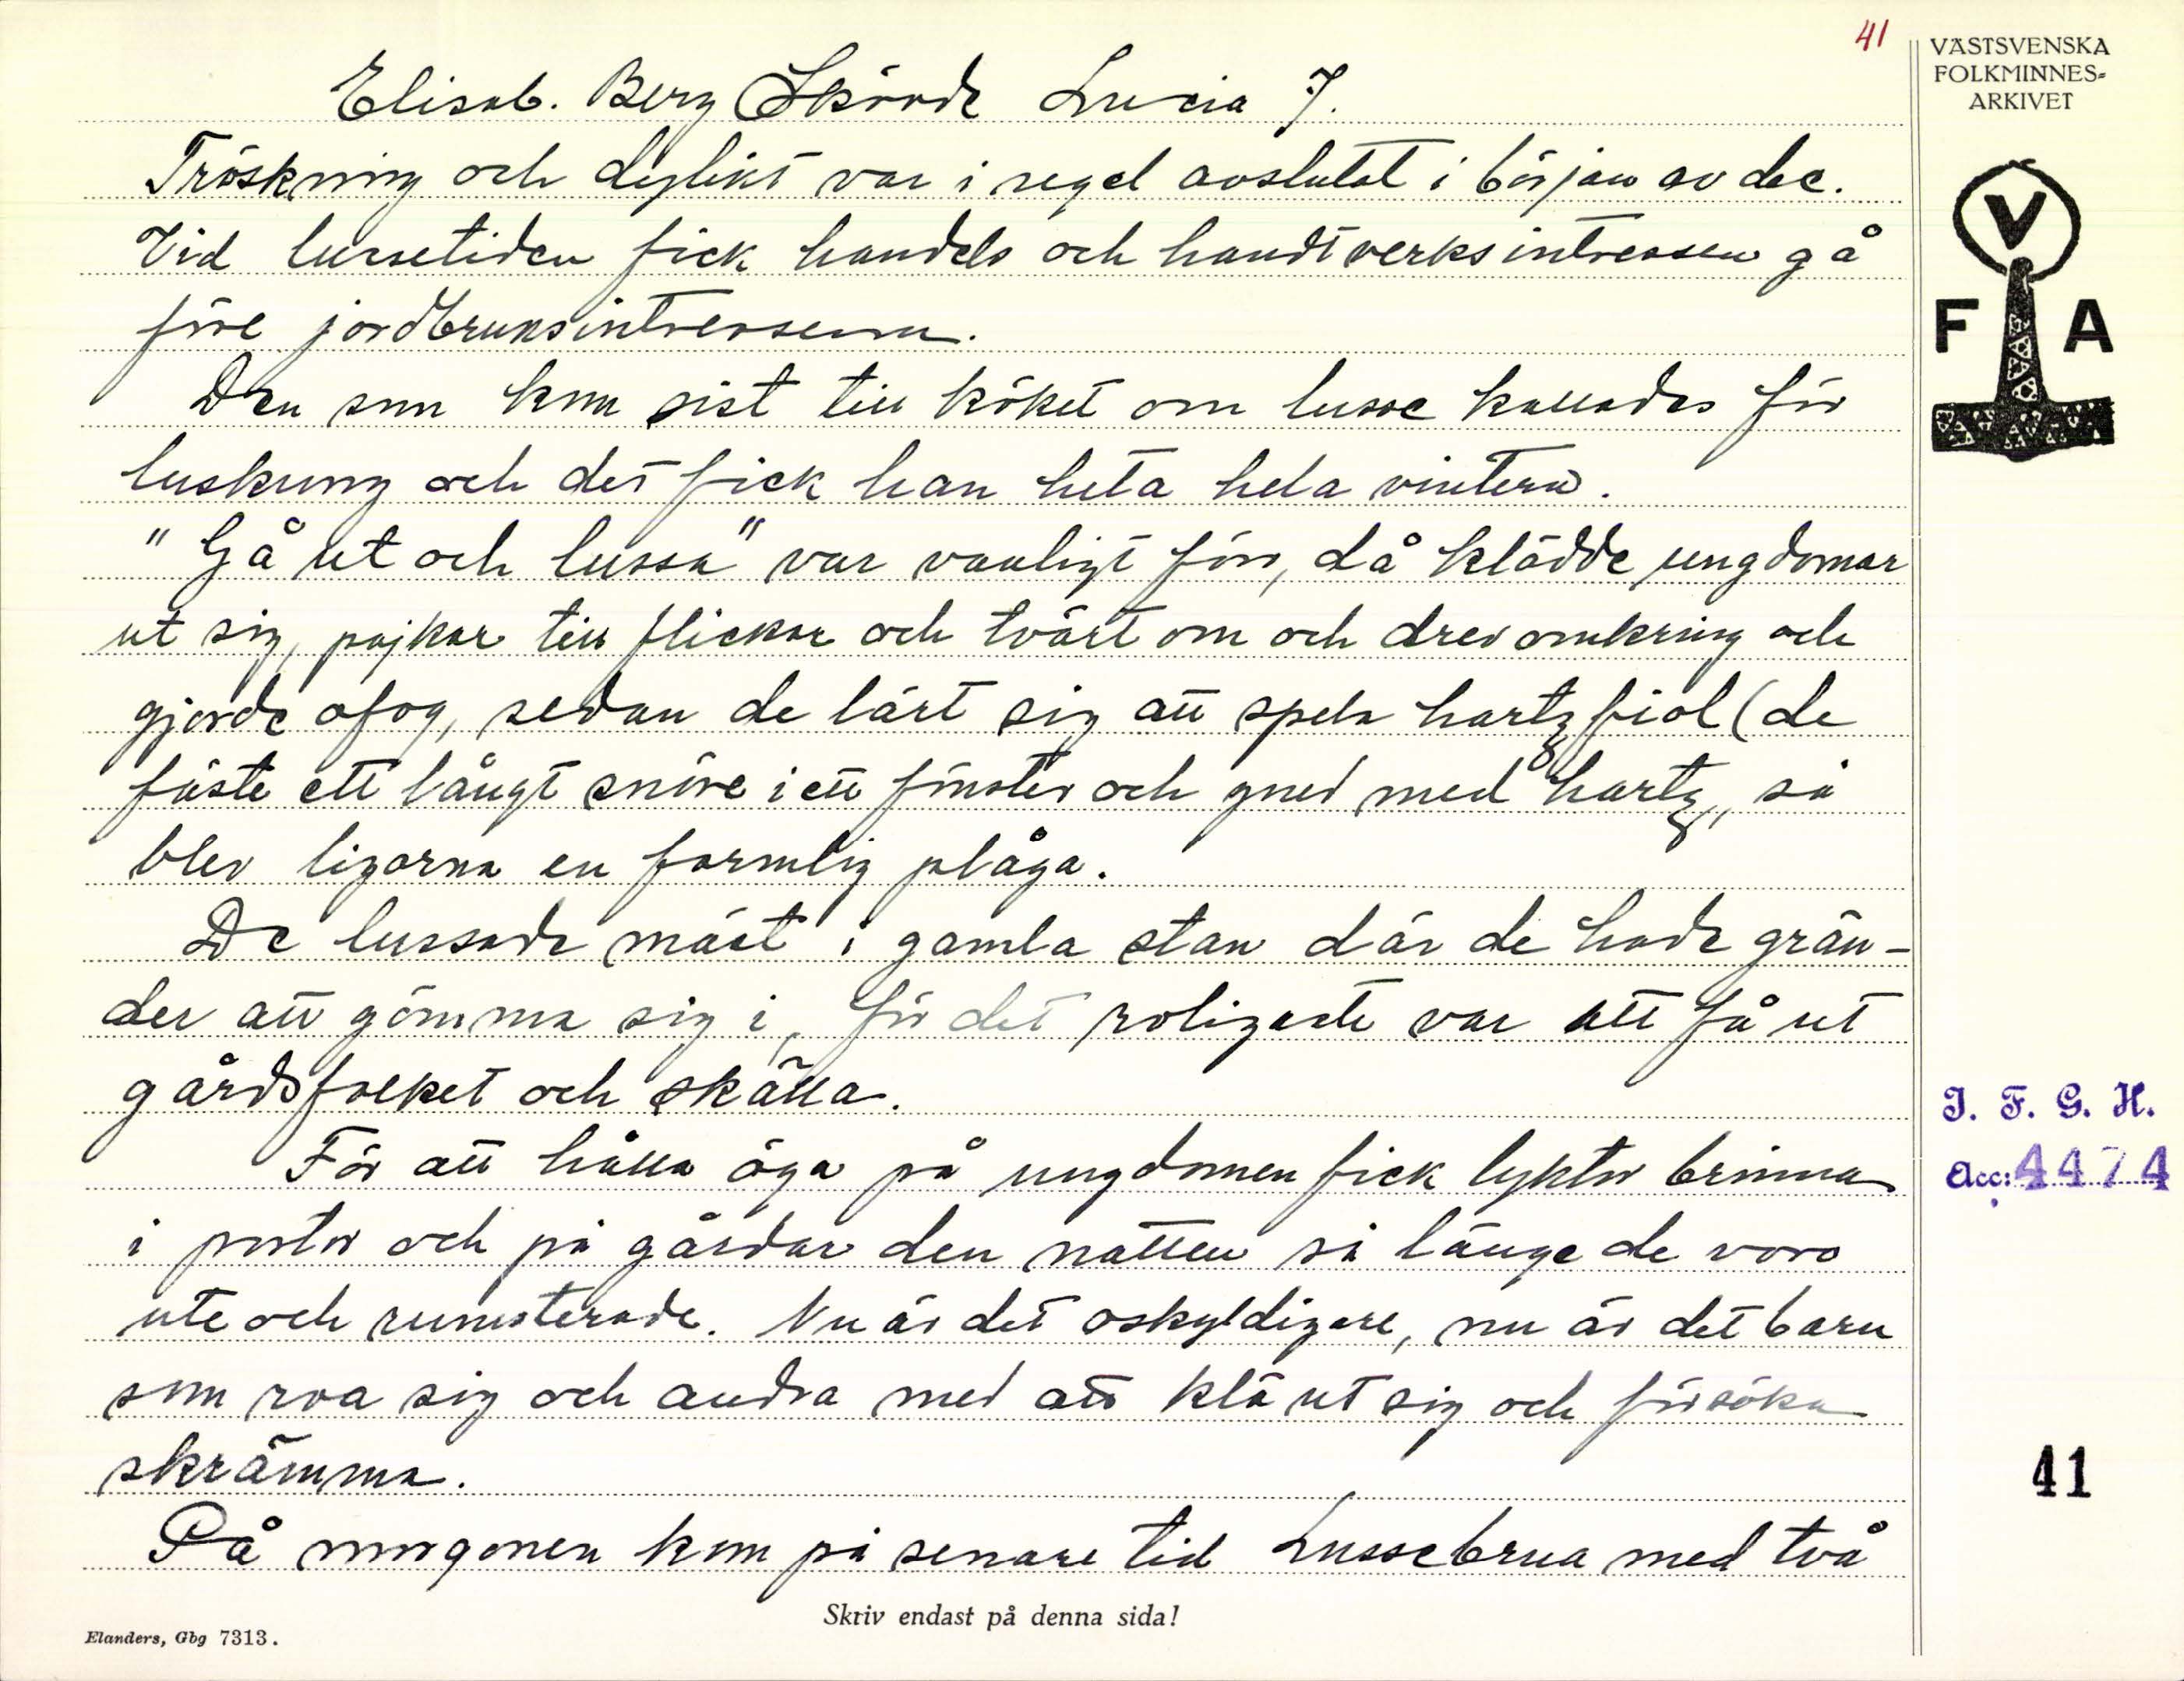 41
VÄSTSVENSKA
FOLKMINNES-
ARKIVET
V
F A
Elisab. Berg Skövde Lucia 7.
Tröskning och dylikt var i regel avslutat i början av dec.
Vid lussetiden fick handels och handtverksintressen gå
före jordbruksintressena.
Den som kom sist till köket om lusse kallades för
luskung och det fick han heta hela vintern.
"Gå ut och lussa" var vanligt förr, då klädde ungdomar
ut sig, pojkar till flickor och tvärt om och drev omkring och
gjorde ofog, sedan de lärt sig att spela hartzfiol (de
fäste ett långt snöre i ett fönster och gned med hartz, så
blev ligorna en formlig plåga.
De lussade mäst i gamla stan där de hade grän-
der att gömma sig i, för det roligaste var att få ut
gårdsfolket och skälla.
För att hålla öga på ungdomen fick lyktor brinna
i portar och på gårdar den natten så länge de voro
ute och rumsterade. Nu är det oskyldigare, nu är det barn
som roa sig och andra med att klä ut sig och försöka
skrämma.
På morgonen kom på senare tid Lussebrua med två
I. F. G. H.
Acc: 4474
41
Skriv endast på denna sida!
Elanders, Gbg 7313.